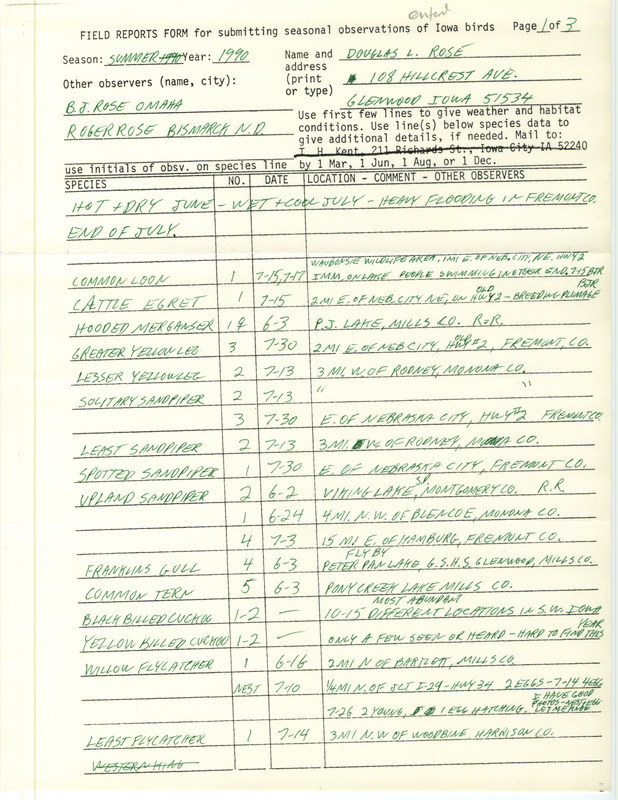 entered
FIELD REPORTS FORM for submitting seasonal observations of Iowa birds Page 1 of 3
Season: SUMMER 1990 Year: 1990 Name and DOUGLAS L. ROSE
address
Other observers (name, city): (print 108 HILLCREST AVE.
or type)
B.J. ROSE OMAHA GLENWOOD IOWA 51534
Use first few lines to give weather and habitat
ROGER ROSE BISMARCK N.D. conditions. Use line(s) below species data to
give additional details, if needed. Mail to:
T. H. Kent, 211 Richards St., Iowa City IA 52240
use initials of obsv. on species line by 1 Mar, 1 Jun, 1 Aug, or 1 Dec.
SPECIES NO. DATE LOCATION - COMMENT - OTHER OBSERVERS
HOT + DRY JUNE - WET + COOL JULY - HEAVY FLOODING IN FREMONT CO.
END OF JULY.
WAUBONSIE WILDLIFE AREA, 1 MI E. OF NEB. CITY, NE, HWY 2
COMMON LOON 1 7-15, 7-17 IMM. ON LAKE PEOPLE SWIMMING IN OTHER END, 7-15 BJR
BJR
CATTLE EGRET 1 7-15 2 MI E. OF NEB CITY NE, ON OLD HWY 2 - BREEDING PLUMAGE
HOODED MERGANSER 1♀ 6-3 P.J. LAKE, MILLS CO. R.R.
GREATER YELLOWLEG 3 7-30 2 MI E. OF NEB CITY, OLD HWY #2, FREMONT, CO.
LESSER YELLOWLEG 2 7-13 3 MI. W OF RODNEY, MONONA CO.
SOLITARY SANDPIPER 2 7-13 " "
3 7-30 E. OF NEBRASKA CITY, HWY #2 FREMONT CO.
LEAST SANDPIPER 2 7-13 3 MI. W OF RODNEY, MONA CO.
SPOTTED SANDPIPER 1 7-30 E. OF NEBRASKA CITY, FREMONT CO.
UPLAND SANDPIPER 2 6-2 VIKING LAKE S.P., MONTGOMERY CO. R.R.
1 6-24 4 MI. N.W. OF BLENCOE, MONONA CO.
4 7-3 15 MI E. OF HAMBURG, FREMONT CO.
FLY BY
FRANKLINS GULL 4 6-3 PETER PAN LAKE G.S.H.S. GLENWOOD, MILLS CO.
COMMON TERN 5 6-3 PONY CREEK LAKE MILLS CO.
MOST ABUNDANT
BLACK BILLED CUCKOO 1-2 — 10-15 DIFFERENT LOCATIONS IN S.W. IOWA
YEAR
YELLOW BILLED CUCKOO 1-2 — ONLY A FEW SEEN OR HEARD - HARD TO FIND THIS
WILLOW FLYCATCHER 1 6-16 2 MI N OF BARTLETT, MILLS CO.
NEST 7-10 1/4 MI N. OF JCT I-29 - HWY 34 2 EGGS - 7-14 4 EGG
I HAVE GOOD
PHOTOS - NEST + EGG
7-26 2 YOUNG, 1 EGG HATCHING. LET ME KNOW
LEAST FLYCATCHER 1 7-14 3 MI N.W OF WOODBINE HARRISON CO.
WESTERN KING